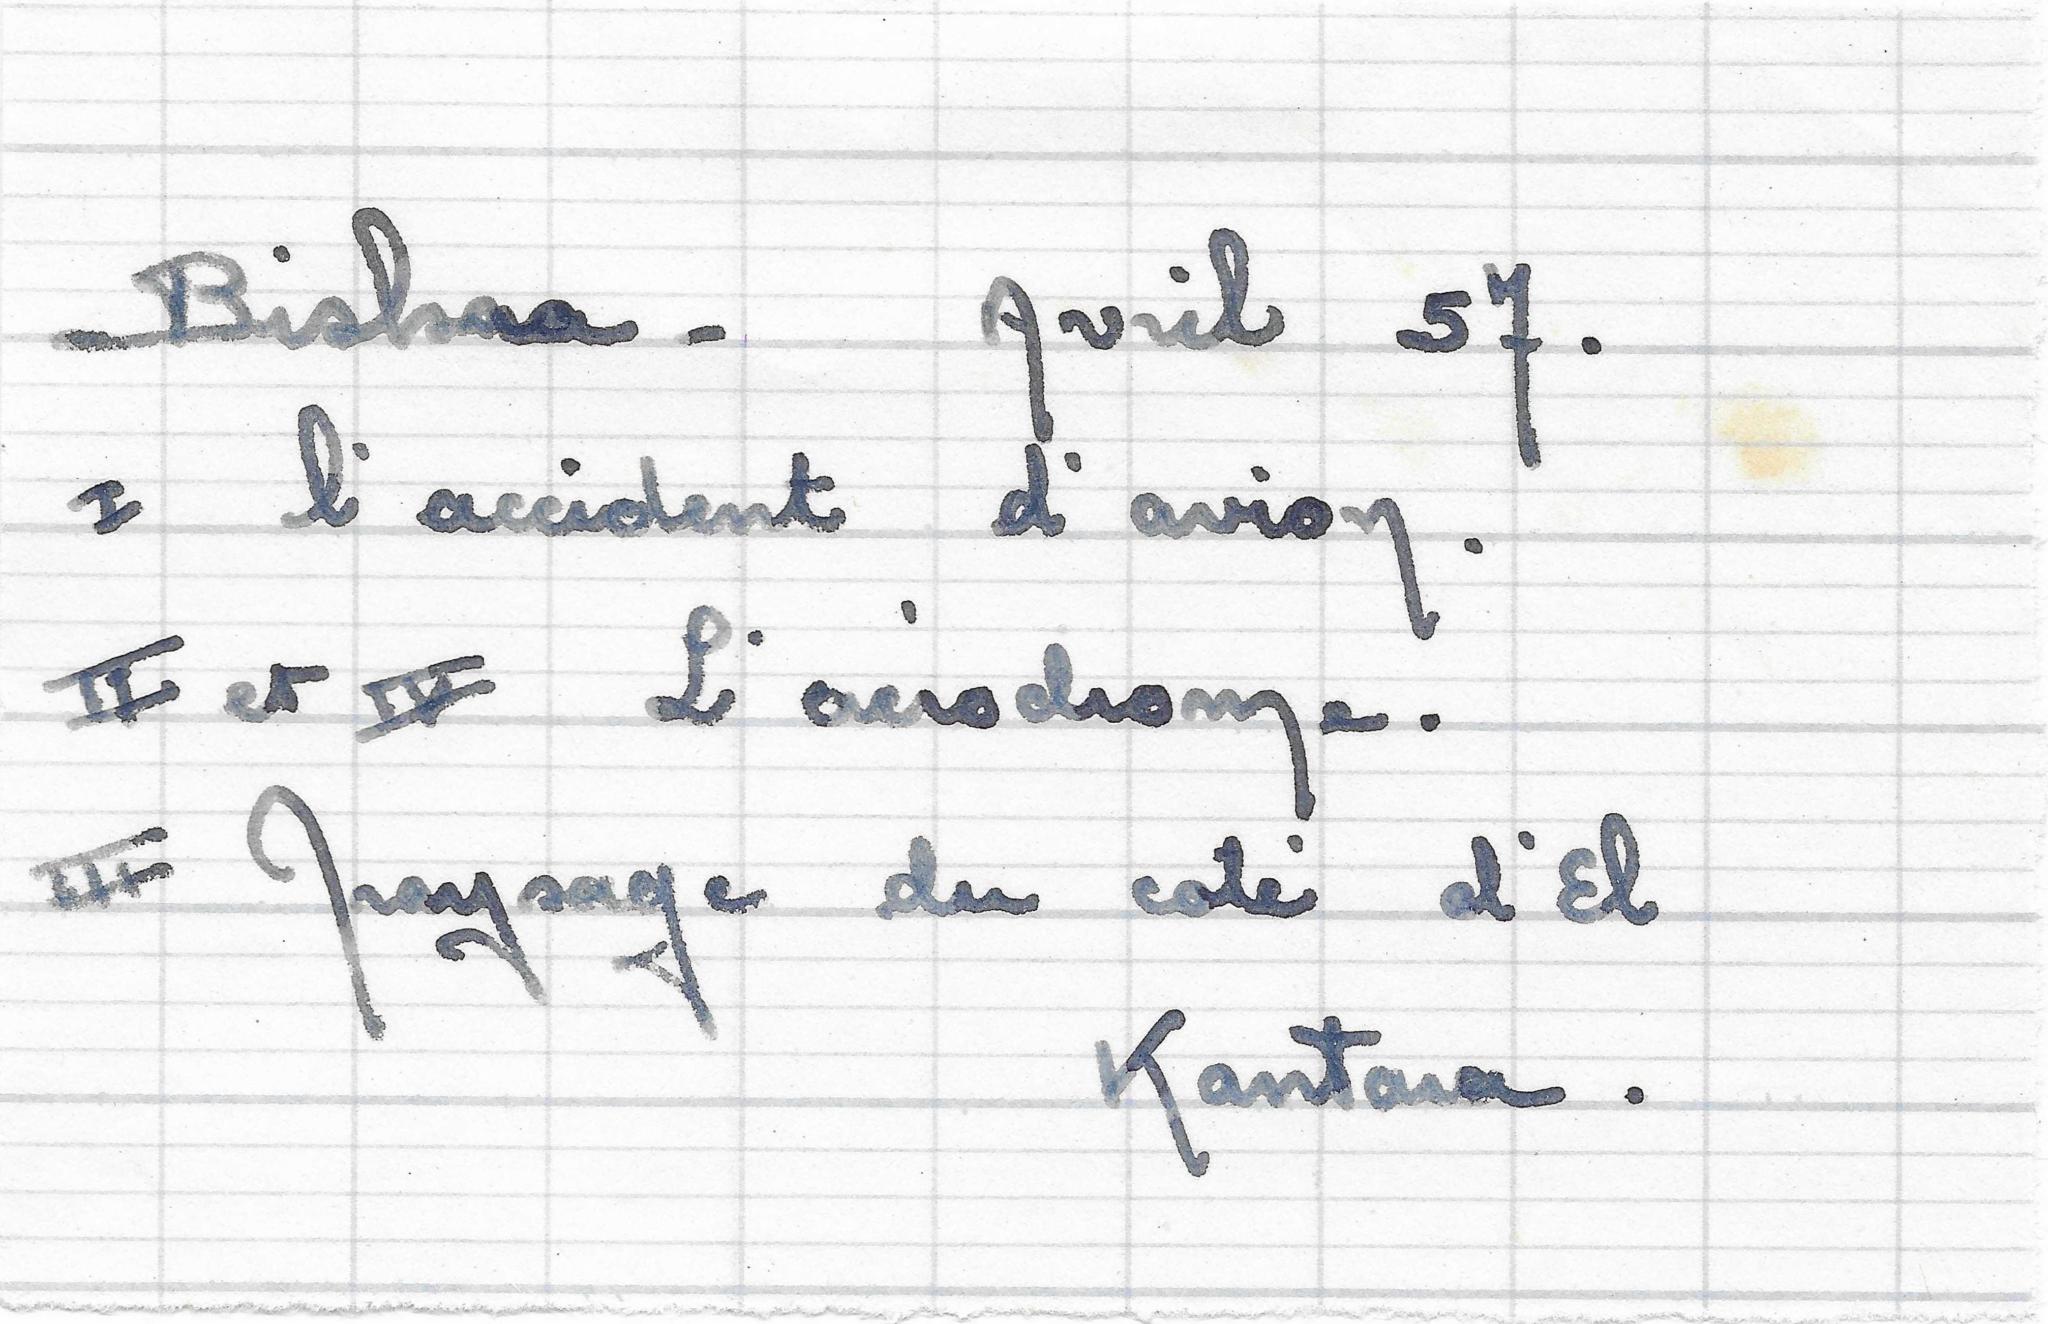 - Biskra - Avril 57.
I l'accident d'avion.
II et IV L'aérodrome.
III Paysage du coté d'El
Kantara.